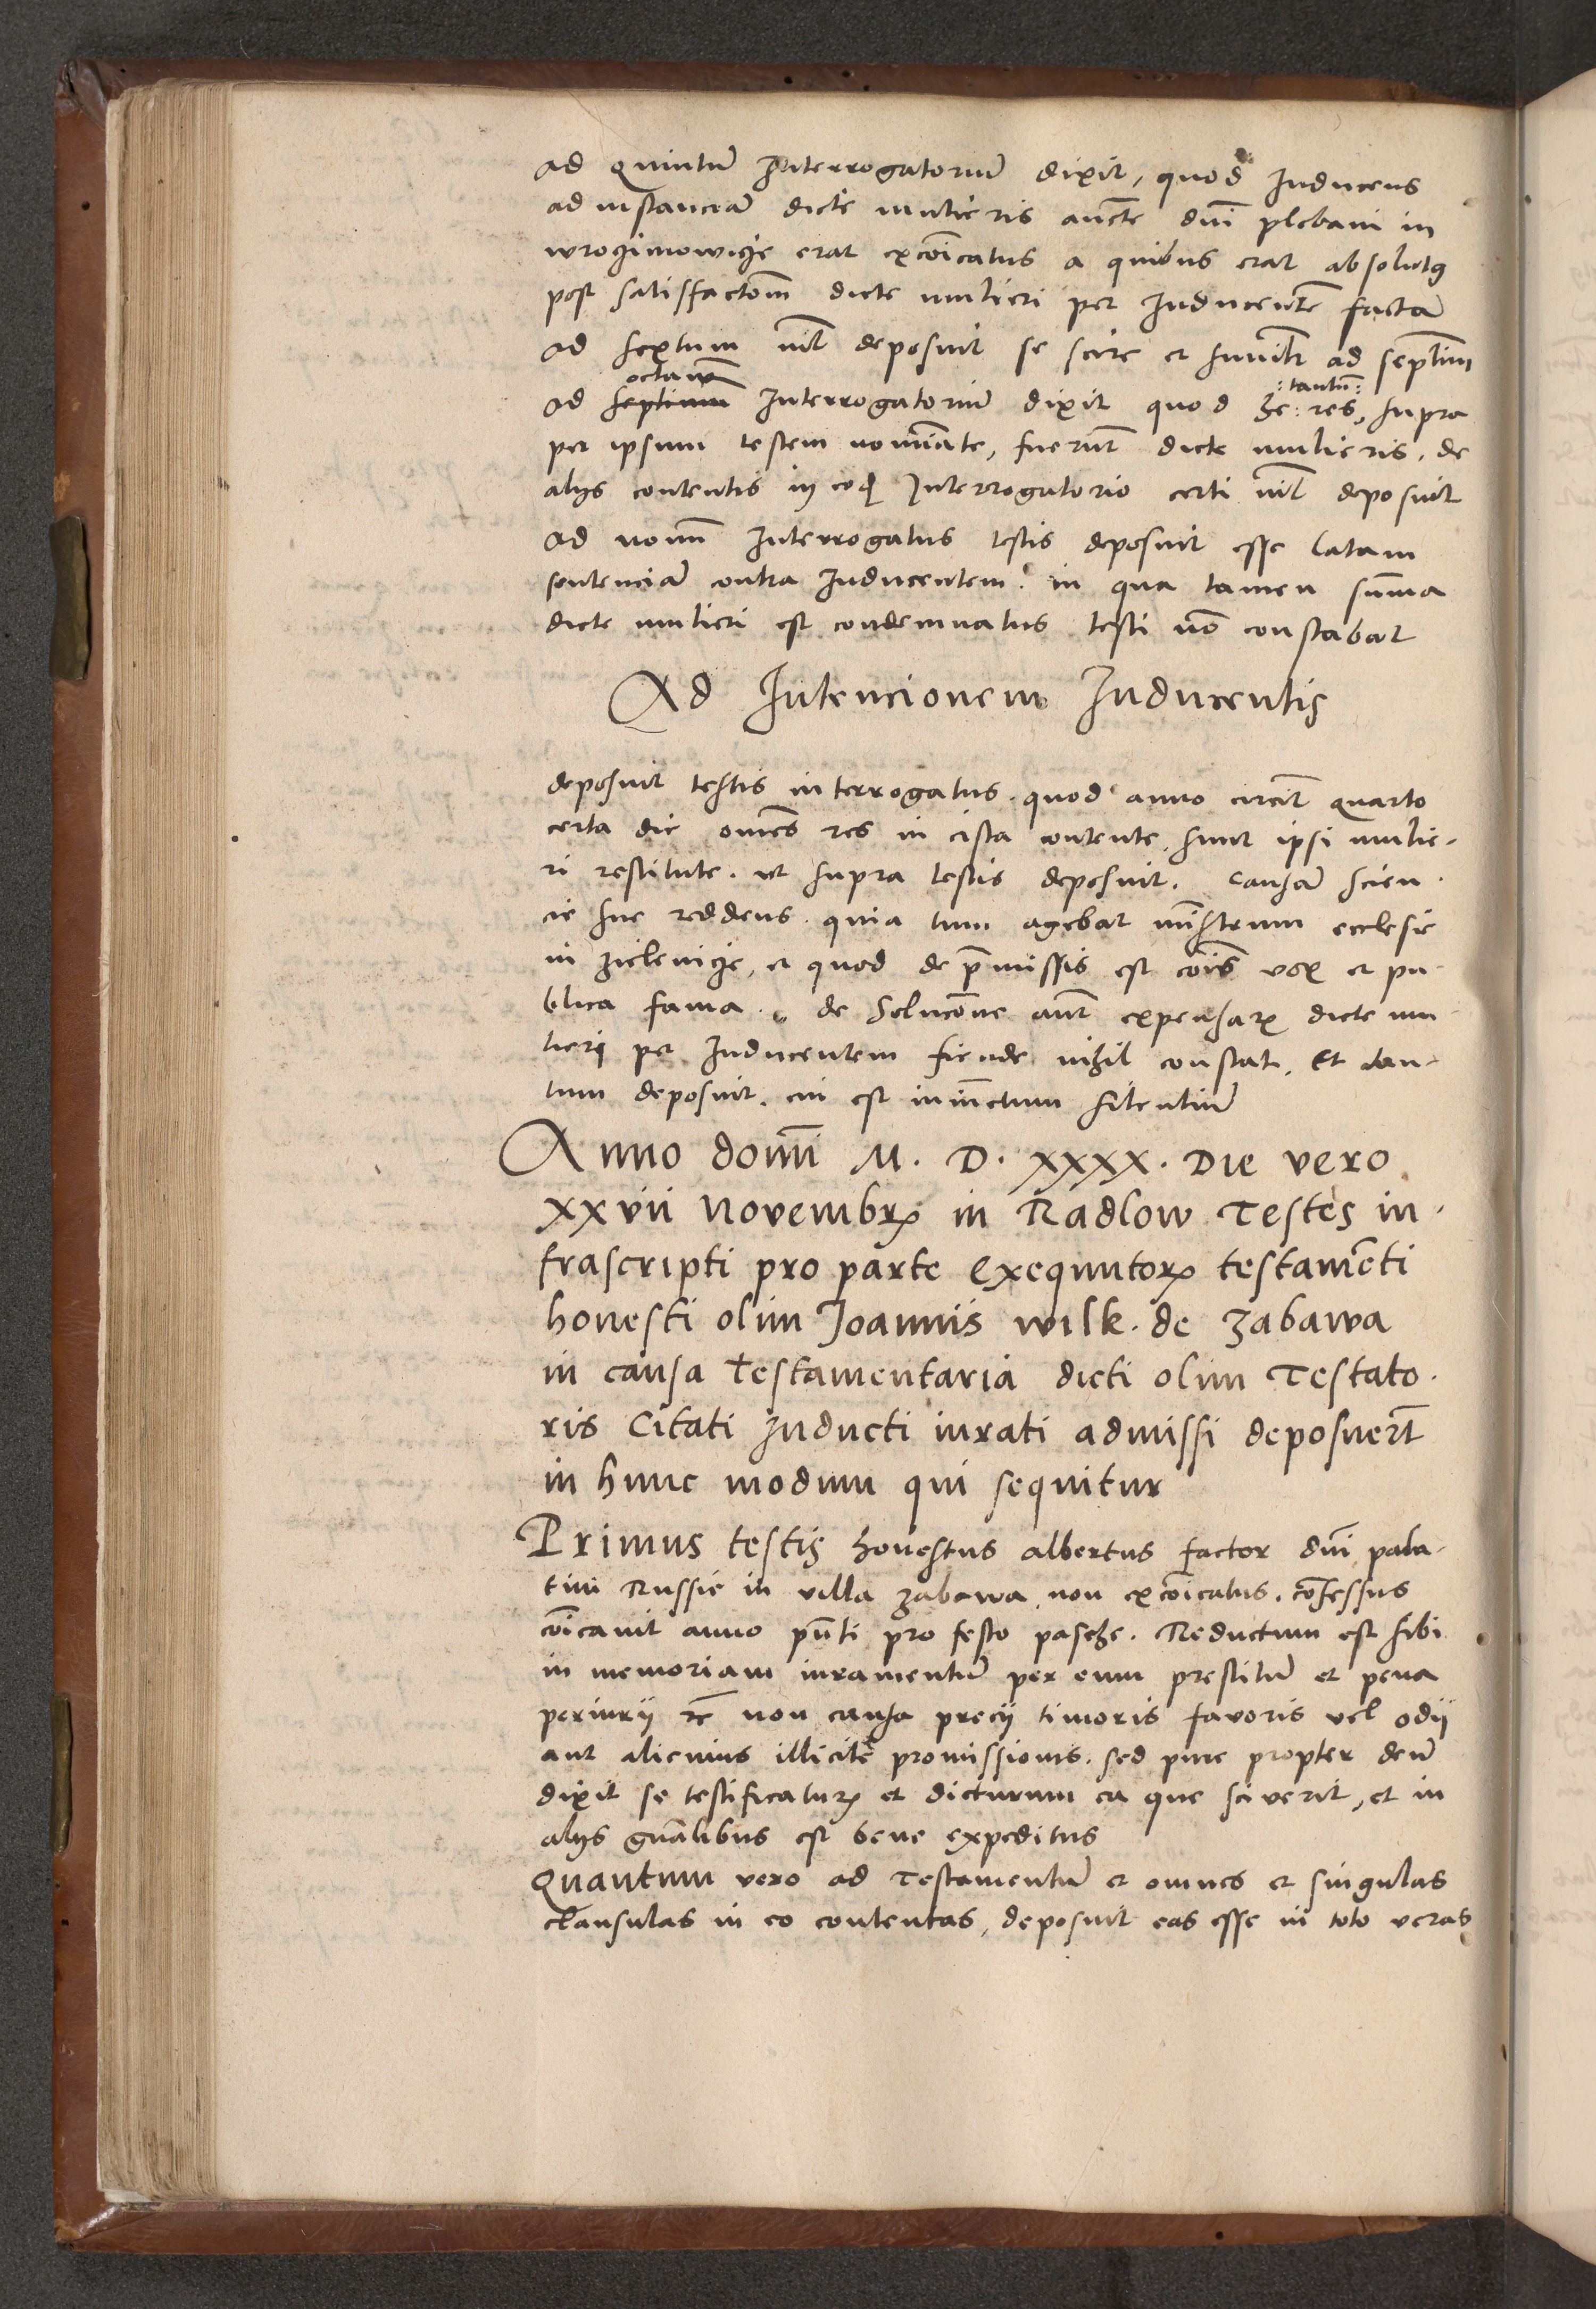 ad Quintū Interrogatoriū dixit, quod Inducens
ad instanciā dicte mulieris aucte dnī plebani in
wrozimowicze erat excōicatus a quibus erat absolutꝰ
post satisfactom̄ dicte mulieri per Inducentē factā
ad sextum nil̄ deposuit se scire et similr̄ ad septimū
octauū
ad septimum Interrogatoriū dixit quod he: res, supra
: tantū :
per ipsum testem nomīate, fuerūt dicte mulieris. de
alijs contentis in eod Interrogatorio certi nil̄ deposuit
ad nonū Interrogatus testis deposuit esse latam
sentenciā contra Inducentem. in qua tamen sūma
dicte mulieri est condemnatus testi nō constabat
Ad Intencionem Inducentis
deposuit testis interrogatus. quod anno circit̄ quarto
certa die om̄es res in cista contente, sunt ipsi mulie-
ri restitute. ut supra testis deposuit. causā scien-
cie sue reddens. quia tum agebat mīstrum ecclesie
in zielenicze, et quod de p̄missis est cōis vox et pu-
blica fama. de Solucōne aut̄ expensaꝝ dicte mu-
lieri per Inducentem fiende nihil constat. Et tan-
tum deposuit. cui est iniūctum silentiū
Anno domī M. D. XXXX. Die vero
XXvii Novembrꝭ in Radlow Testes in-
frascripti pro parte Exequutoꝝ testamēti
honesti olim Joannis wilk. de Zabawa
in causa testamentaria dicti olim Testato-
ris Citati Inducti iurati admissi deposuert̄
in hunc modum qui sequitur
Primus testis honestus albertus factor dnī pala-
tini Russie in villa zabawa, non excōicatus. cōfessus
cōicauit anno pn̄ti pro festo pasche. Reductum est sibi
in memoriam iuramentū per eum prestitū et pena
periurij rc̄ non causa precij timoris favoris vel odij
aut alicuius illicite promissionis. sed pure propter deū
dixit se testificaturꝫ et dicturum ea que sciverit, et in
alijs gn̄alibus est bene expeditus
Quantum vero ad Testamentū et omnes et singulas
clausulas in eo contentas, deposuit eas esse in toto veras